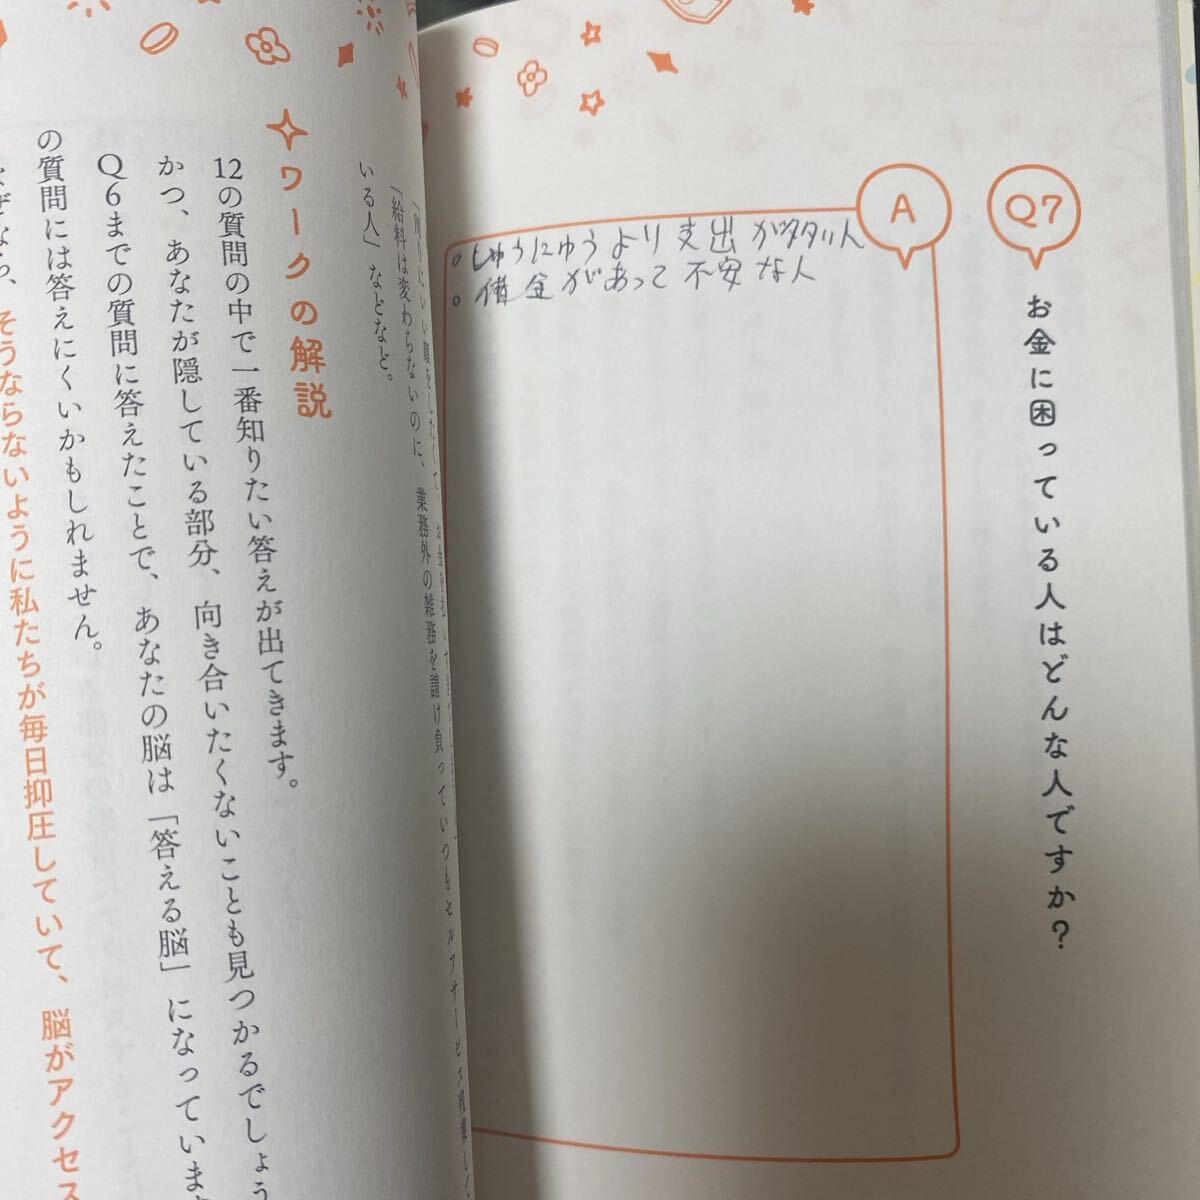 Q7
お金に困っている人はどんな人ですか？
A
。しゅうにゅうより支出が多い人
。借金があって不安な人
いい顔をしたくて、お金を払いすぎてしま
「給料は変わらないのに、業務外の雑務を請け負っていつもセルフサービス残業して
いる人」などなど。
ワークの解説
12の質問の中で一番知りたい答えが出てきます。
かつ、あなたが隠している部分、向き合いたくないことも見つかるでしょう
Q6までの質問に答えたことで、あなたの脳は「答える脳」になっていま
の質問には答えにくいかもしれません。
なぜなら、そうならないように私たちが毎日抑圧していて、脳がアクセス